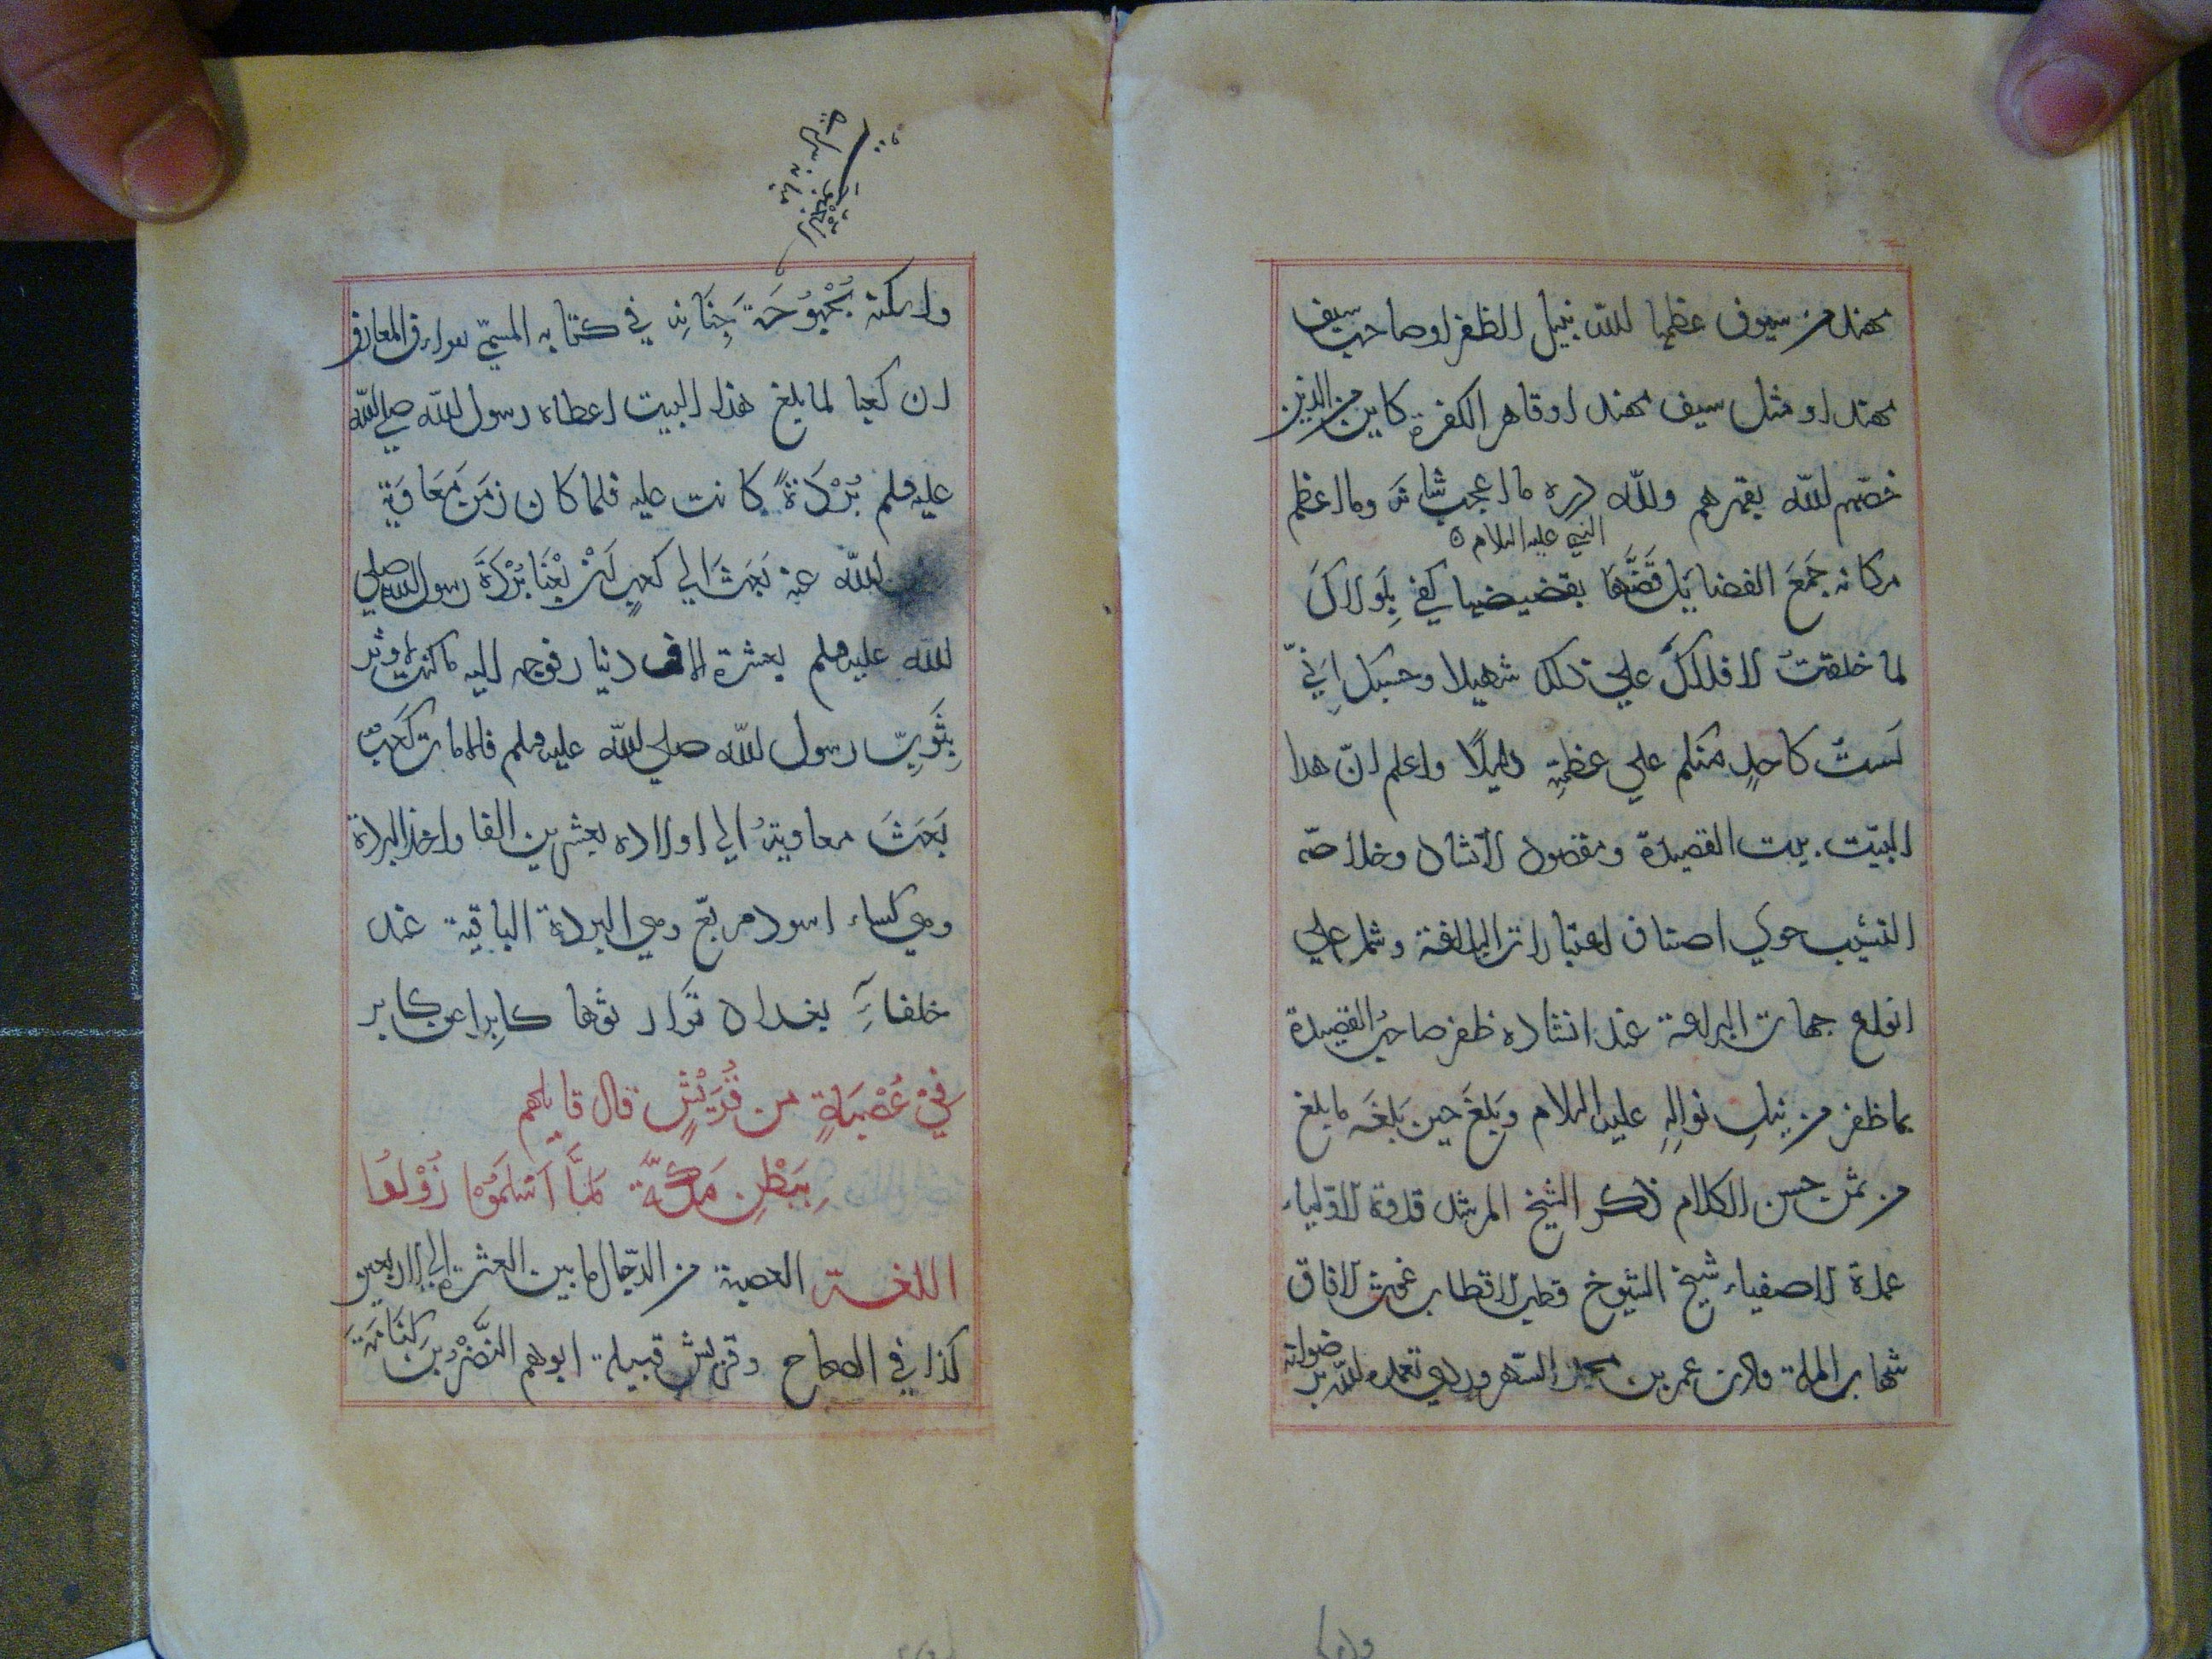 مهند من سيوف عظمها الله بنيل الظفر او صاحب سيف
مهند او مثل سيف مهند او قاهر الكفرة كاين من الذين
خصهم الله بقهرهم ولله دره ما اعجب شانه وما اعظم
النبي عليه السلام
مكانه جَمَعَ الفضايل قَضَّهَا بقضيضها كفى بِلَولاكَ
لما خلقتُ الافلاكَ على ذلك شهيدا وحسبك اَنِّي
لَستُ كاحدٍ منكم على عظمتِهِ دليلًا واعلم انّ هذا
البيت بيت القصيدة ومقصود الانشاد وخلاصة
النسيب حوى اصناف اعتبارات البلاغة وشمل على
انواع جهات البراعة عند انشاده ظفر صاحبُ القصيدة
بما ظفر من نيلِ نوالِهِ عليه السلام وبَلغَ حين بَلغَه ما بلغ
من ثمن حسن الكلام ذكر الشيخ المرشد قدوة الاولياء
عمدة الاصفياء شيخ الشيوخ قطب الاقطاب غوث الافاق
شهاب الملة والدين عمر بن محمد السهروردي تغمده الله برضوانه
واسكنه بُحْبُوحَةَ جِنَانِه في كتابه المسمّى بعوارف المعارف
ان كعبا لما بلغ هذا البيت اعطاه رسول الله صلى الله
عليه وسلم بُرْدَةً كانت عليه فلما كان زمَن مُعَاوِيَة
الله عنه بَعَثَ الى كعبٍ اَنْ بِعْنَا بُرْدَةَ رسول الله صلى
الله عليه وسلم بعشرة الاف دينار فوجه اليه ما كنت لاوثر
بِثَوبِ رسول الله صلى الله عليه وسلم فلما مات كَعبٌ
بَعَثَ معاويةُ الى اولاده بعشرين الفا واخذ البردة
وهي كساء اسود مربّع وهي البردة الباقية عند
خلفاءِ بغداد تَوَارثوها كابِرا عن كابر
فِيْ عُصْبَةٍ من قُرَيْشٍ قال قايلهم
بِبَطْنِ مَكَّةَ لمَّا اَسْلَمُوْا زُوْلُوْا
اللغة العصبة من الرّجال ما بين العشرة الى الاربعين
كذا في الصحاح وقريش قبيلة ابوهم النَّضْرُ بن كِنَانَةَ